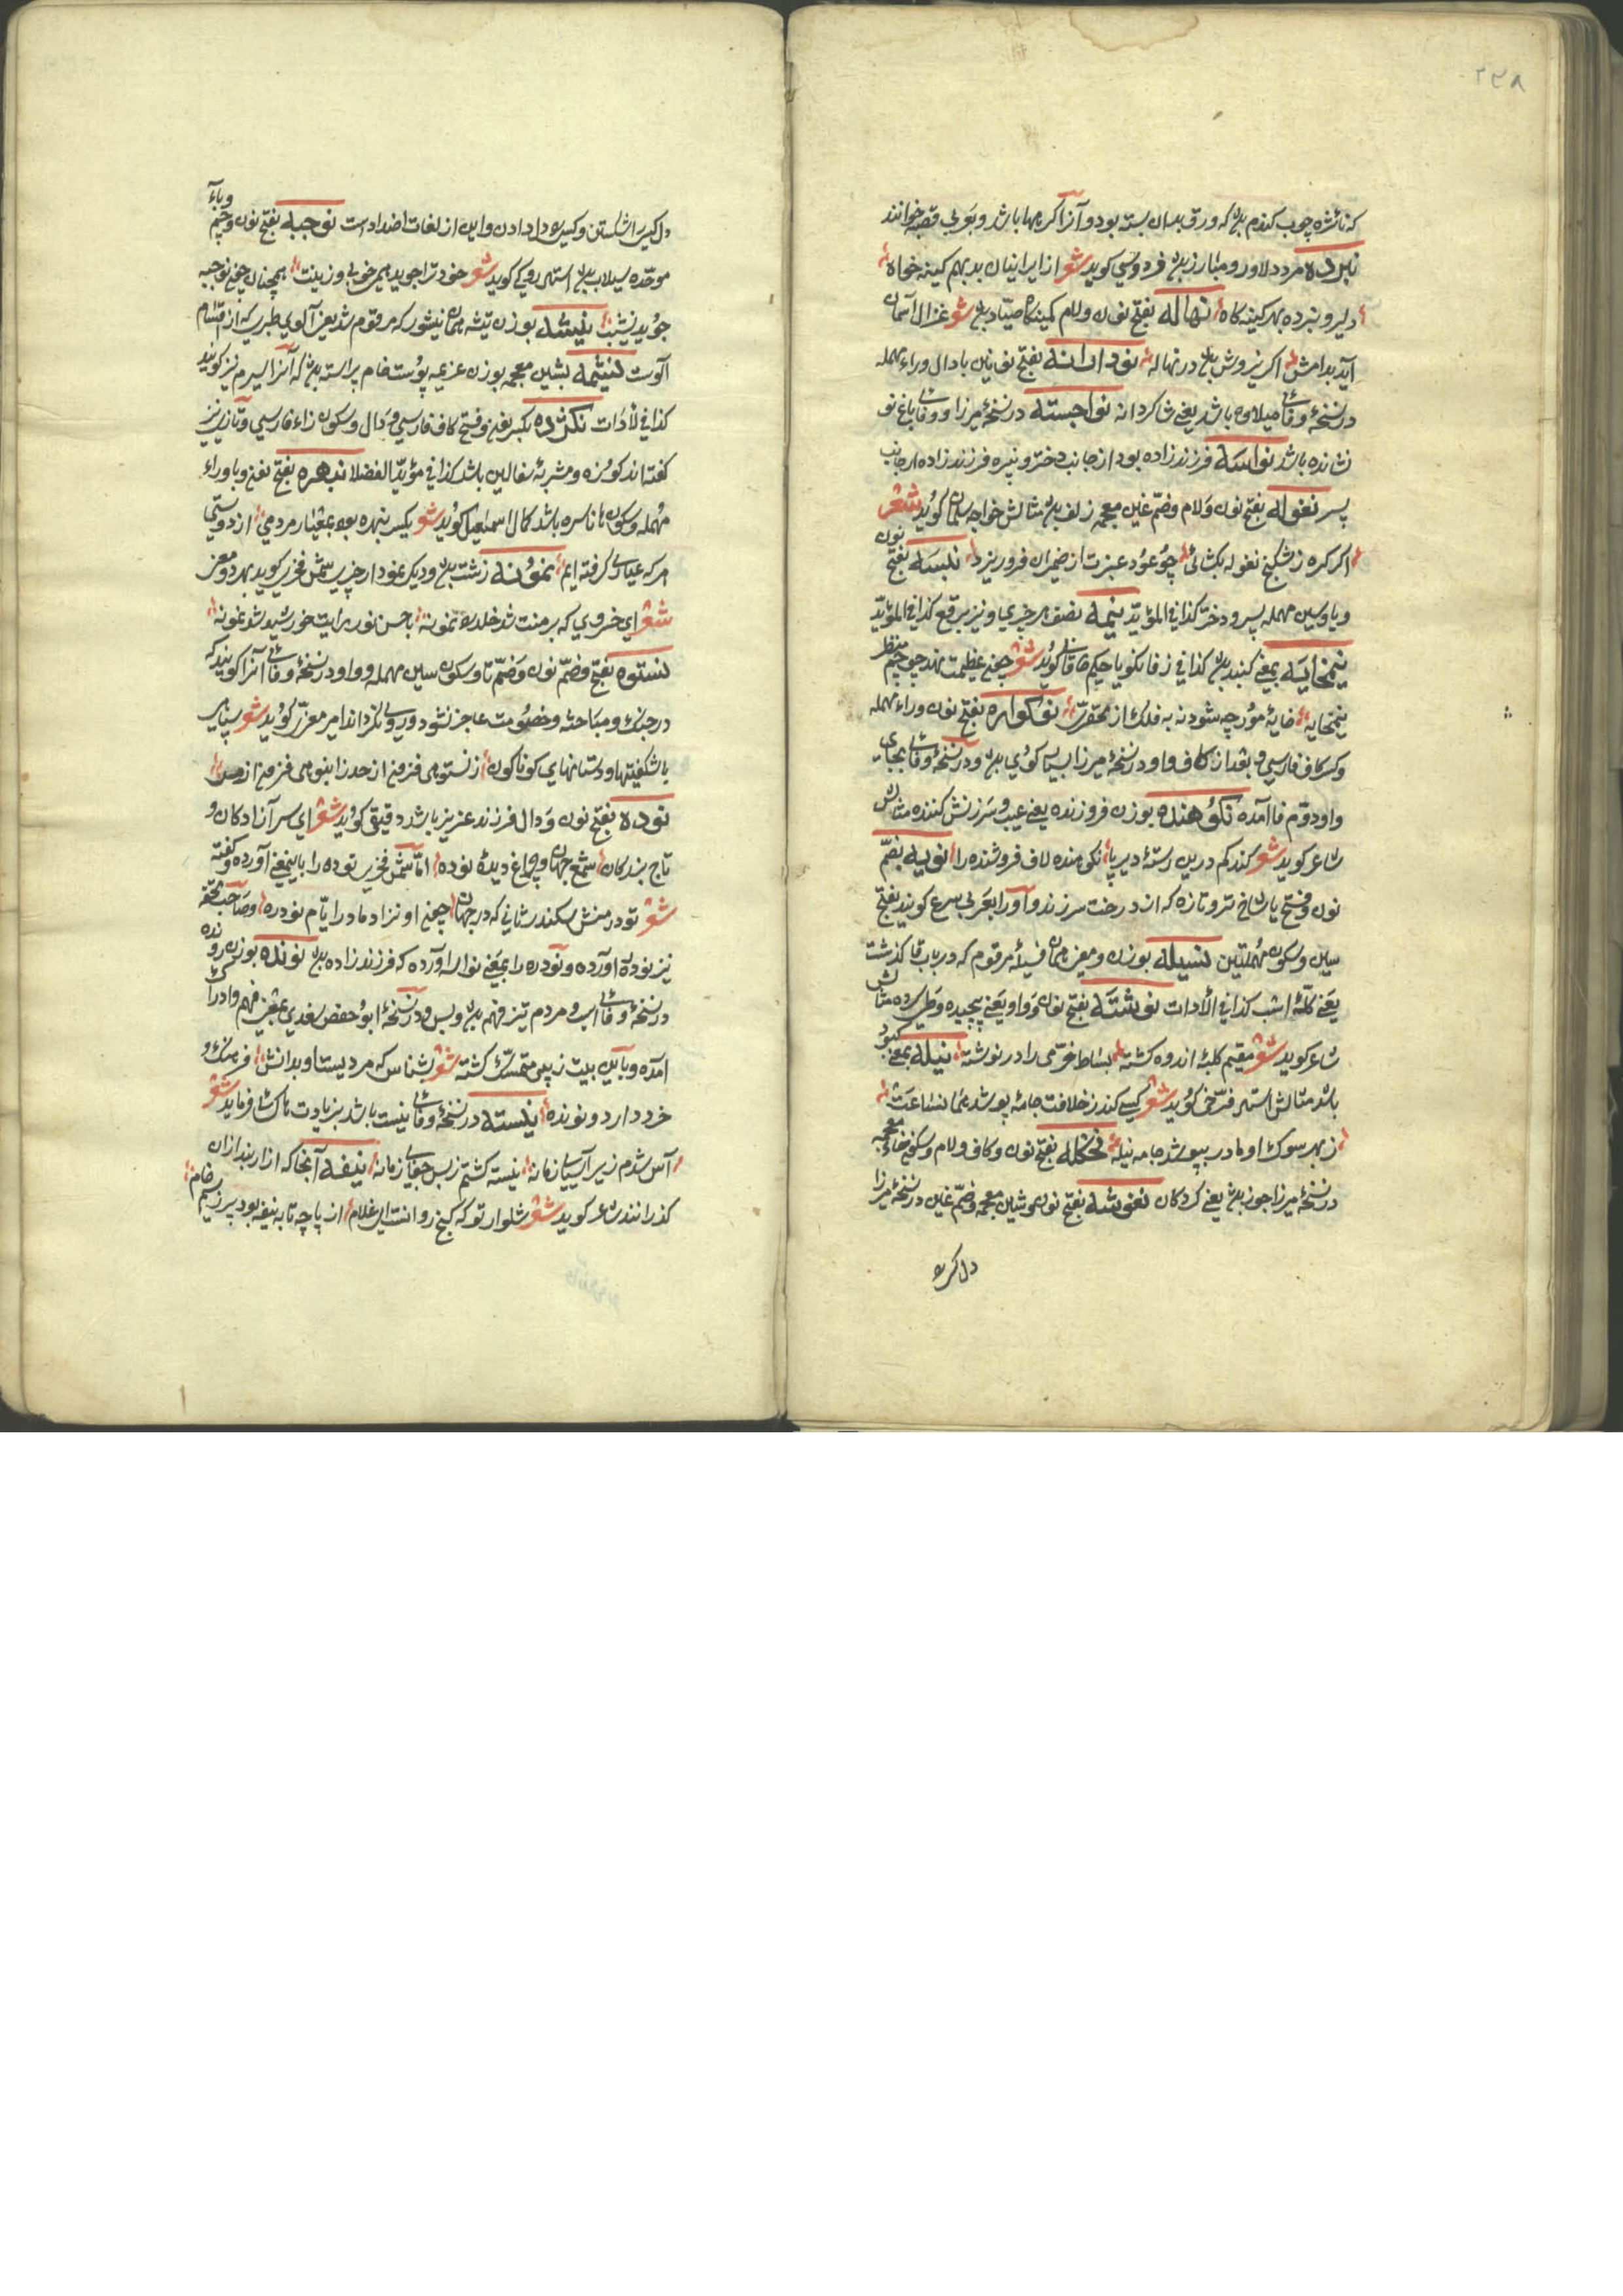 ۲۲۸
که نائژه چوب کندم بدن که ورق بدان بسته بود و آنرا کره مها باشد و بعربی قصبه خوانند
نبرده مرد دلاور و مبارز بدن فردوسی کوید شعر از ایرانیان بد بهم کینه خواه
دلیر و نبرده بهر کینه کاه نهاله بفتح نون و لام کمینکاه صیّاد بدن شعر غزال آسمان
آید بدامش اکر نیز وش بدن در نهاله نودارانه بفتح نون باین با دال و راء مهمله
در نسخهٔ وفائی میلاوه باشد یعنی شاکردانه نواجسته در نسخهٔ میرزا و وفائی باغ نو
نشانده باشد نواسه فرزندزاده بود از جانب دختر و نبیره فرزندزاده از جانب
پسر نغوله بفتح نون و لام وضمّ غین معجمه زلف بدن مثالش خواجه سلمان کوید شعر
اکر کره ز شکنج نغوله بکشائی چو عود عبیرت از ضمیران فرو ریزد نبسه بفتح نون
و با و سین مهمله پسر و دختر کذا فی المؤیّد نیمه نصف هر چیزی و نیز برقع کذا فی المؤیّد
نیمخایه بمعنی کنبد بدن کذا فی زفانکویا حکیم خاقانی کوید شعر چغی عظیمت نهد چو چشم منظر
نیمخایه خایهٔ مورچه شود نه به فلک از محقرت نوکواره بفتح نون و راء مهمله
و کسر کاف فارسی و بعد از کاف و او در نسخهٔ میرزا بسیا کوی بدن و در نسخهٔ وفائی بجای
واو دوّم فا آمده نکوهنده بوزن فروزنده یعنی عیب و سرزنش کننده مثالش
شاعر کوید شعر کند کم درین رستهٔ دیر پا نکوهنده لاف فروشنده را نویه بضمّ
نون و فتح یا شاخ تر و تازه که از درخت سر زند و آنرا بعربی سرع کویند بفتح
سین و سکون مهملتین نسیله بوزن و معنی همان فسیلهٔ مرقوم که در باب فا کذشت
یعنی کلّهٔ اسب کذا فی الأدات نوشته بفتح نون و واو یعنی پیچیده و طی کرده مثالش
شاعر کوید شعر مقیم کلبهٔ اندوه کشته بساط خرّمی را در نوشته نیله بمعنی کبود
باشد مثالش استاد فرّخی کوید شعر کسی کند ز خلافت جامه پوشد همان ساعت
ز بهر سوک او مادر بپوشد جامه نیله نخکله بفتح نون و کاف و لام و سکون خاء معجمه
در نسخهٔ میرزا جوز بدن یعنی کردکان نغوشه بفتح نون و شین معجمه و ضمّ غین در نسخهٔ میرزا
دل کره
دل کسی شکستن و کسی بود دل دادن و این از لغات اضدادست نوجبه بفتح نون و جیم و باء
موحّده سیلاب بدن استاد رودکی کوید شعر خود ترا جوید همی خوبی و زینت همچنان چون نوجبه
جوید نشیب نیشه بوزن تیشه همان نیشور که مرقوم شد یعنی آلوی طبری که از اقسام
آلوست نیشمه بشین معجمه بوزن عزیمه پوست خام پیراسته بدن که آنرا السیرم نیز کویند
کذا فی الأدات نکژده بکسر نون و فتح کاف فارسی و دال و سکون زاء فارسی و تازی نیز
کفته‌اند کوزه و مشربهٔ سفالین باشد کذا فی مؤیّد الفضلا نبهره بفتح نون و با و راء
مهمله و سکون ها ناسره باشد کمال اسمعیل کوید شعر یکسر نبهره بود بمعیار مردمی از دوستی
هر که عیاری کرفته ایم نمونه زشت بدن و دیکر نمودار چیزی شمس فخری کوید بهر دو معنی
شعر ای خسروی که بر منت شد خلد نمونه با حسن نور رایت خورشید شد نمونه
نستوه بفتح و ضمّ نون و ضمّ تا و سکون سین مهمله و واو در نسخهٔ وفائی آنرا کویند که
در جنک و مباحثه و خصومت عاجز نشود و روی نکرداند امیر معزّی کوید شعر سپاهی
با شکفتیها و دستانهای کوناکون از نستوهی فزون از حد ز انبوهی فزون از حس
نوده بفتح نون و دال فرزند عزیز باشد دقیقی کوید شعر ای سر آزادکان و
تاج بزرکان شمع جهان و چراغ دیدهٔ نوده امّا شمس فخری توده را باینمعنی آورده و کفته
شعر تو در منش سکندر ثانی که در جهان چون او نزاد مادر ایّام نودره و صاحب تحفه
نیز نوده آورده و نودره را بمعنی نواسه آورده که فرزندزاده بدن نونده بوزن رونده
در نسخهٔ وفائی اسب و مردم تیز فهم بدن و بس و در نسخهٔ ابوحفص سغدی بمعنی فهم و ادراک
آمده و باین بیت زینبی متمسّک کشته شعر بشناس که مردیست او بدانش فرهنک و
خرد دارد و نونده نیسته در نسخهٔ وفائی نیست باشد بزیادت ها کسائی فرماید شعر
آس شدم زیر آسیای زمانه نیسته کشتم ز بس جفای زمانه نیفه آنجا که ازاربند ازان
کذرانند شاعر کوید شعر شلوار تو که کنج روانست ای غلام از پاچه تا به نیفه بود پر ز سیم خام